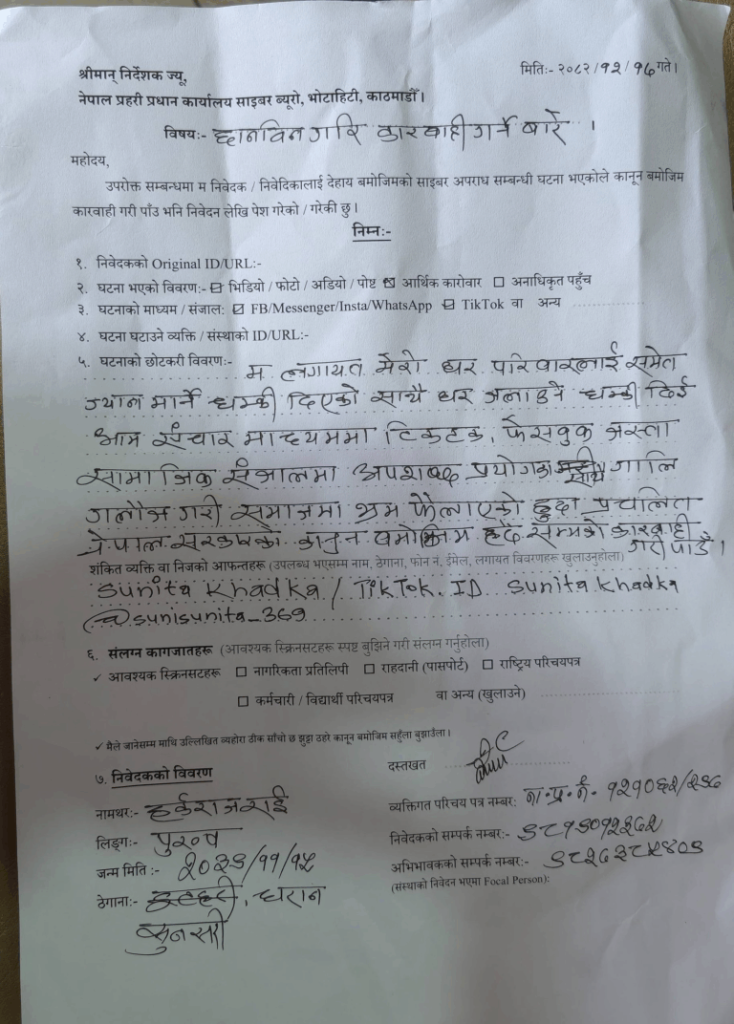 श्रीमान् निर्देशक ज्यू,
मिति:- २०८२/१२/१६ गते।
नेपाल प्रहरी प्रधान कार्यालय साइबर ब्यूरो, भोटाहिटी, काठमाडौँ।
विषय:- छानविन गरि कारवाही गर्ने बारे ।
महोदय,
उपरोक्त सम्बन्धमा म निवेदक / निवेदिकालाई देहाय बमोजिमको साइबर अपराध सम्बन्धी घटना भएकोले कानून बमोजिम
कारवाही गरी पाँउ भनि निवेदन लेखि पेश गरेको / गरेकी छु।
निम्न:-
१. निवेदकको Original ID/URL:-
२. घटना भएको विवरण:- ☑ भिडियो / फोटो / अडियो / पोष्ट ☑ आर्थिक कारोवार ☐ अनाधिकृत पहुँच
३. घटनाको माध्यम / संजाल: ☑ FB/Messenger/Insta/WhatsApp ☑ TikTok वा अन्य
४. घटना घटाउने व्यक्ति / संस्थाको ID/URL:-
५. घटनाको छोटकरी विवरण:- म लगायत मेरो घर परिवारलाई समेत
ज्यान मार्ने धम्की दिएको साथै घर जलाउने धम्की दिई
आम संचार माध्यममा टिकटक, फेसवुक जस्ता
सामाजिक संजालमा अपशब्द प्रयोगका साथै गालि
गलौज गरी समाजमा भ्रम फैलाएको हुदा प्रचलित
नेपाल सरकारको कानुन वमोजिम हदै सम्मको कारवाही
गरी पाउँ।
शंकित व्यक्ति वा निजको आफन्तहरू (उपलब्ध भएसम्म नाम, ठेगाना, फोन नं, ईमेल, लगायत विवरणहरू खुलाउनुहोला)
Sunita Khadka / TikTok. ID Sunita Khadka
@sunisunita_369
६. संलग्न कागजातहरू (आवश्यक स्क्रिनसटहरू स्पष्ट बुझिने गरी संलग्न गर्नुहोला)
✓ आवश्यक स्क्रिनसटहरू ☐ नागरिकता प्रतिलिपी ☐ राहदानी (पासपोर्ट) ☐ राष्ट्रिय परिचयपत्र
☐ कर्मचारी / विद्यार्थी परिचयपत्र वा अन्य (खुलाउने)
✓ मैले जानेसम्म माथि उल्लिखित व्यहोरा ठीक साँचो छ झुठ्ठा ठहरे कानून बमोजिम सहुँला बुझाउँला।
७. निवेदकको विवरण
दस्तखत
नामथर:- हर्कराज राई
व्यक्तिगत परिचय पत्र नम्बर: ना.प्र.नं.
लिङ्ग:- पुरुष
निवेदकको सम्पर्क नम्बर:-
जन्म मिति :- २०३९/११/१५
अभिभावकको सम्पर्क नम्बर:-
(संस्थाको निवेदन भएमा Focal Person):
ठेगाना:- धरान
सुनसरी